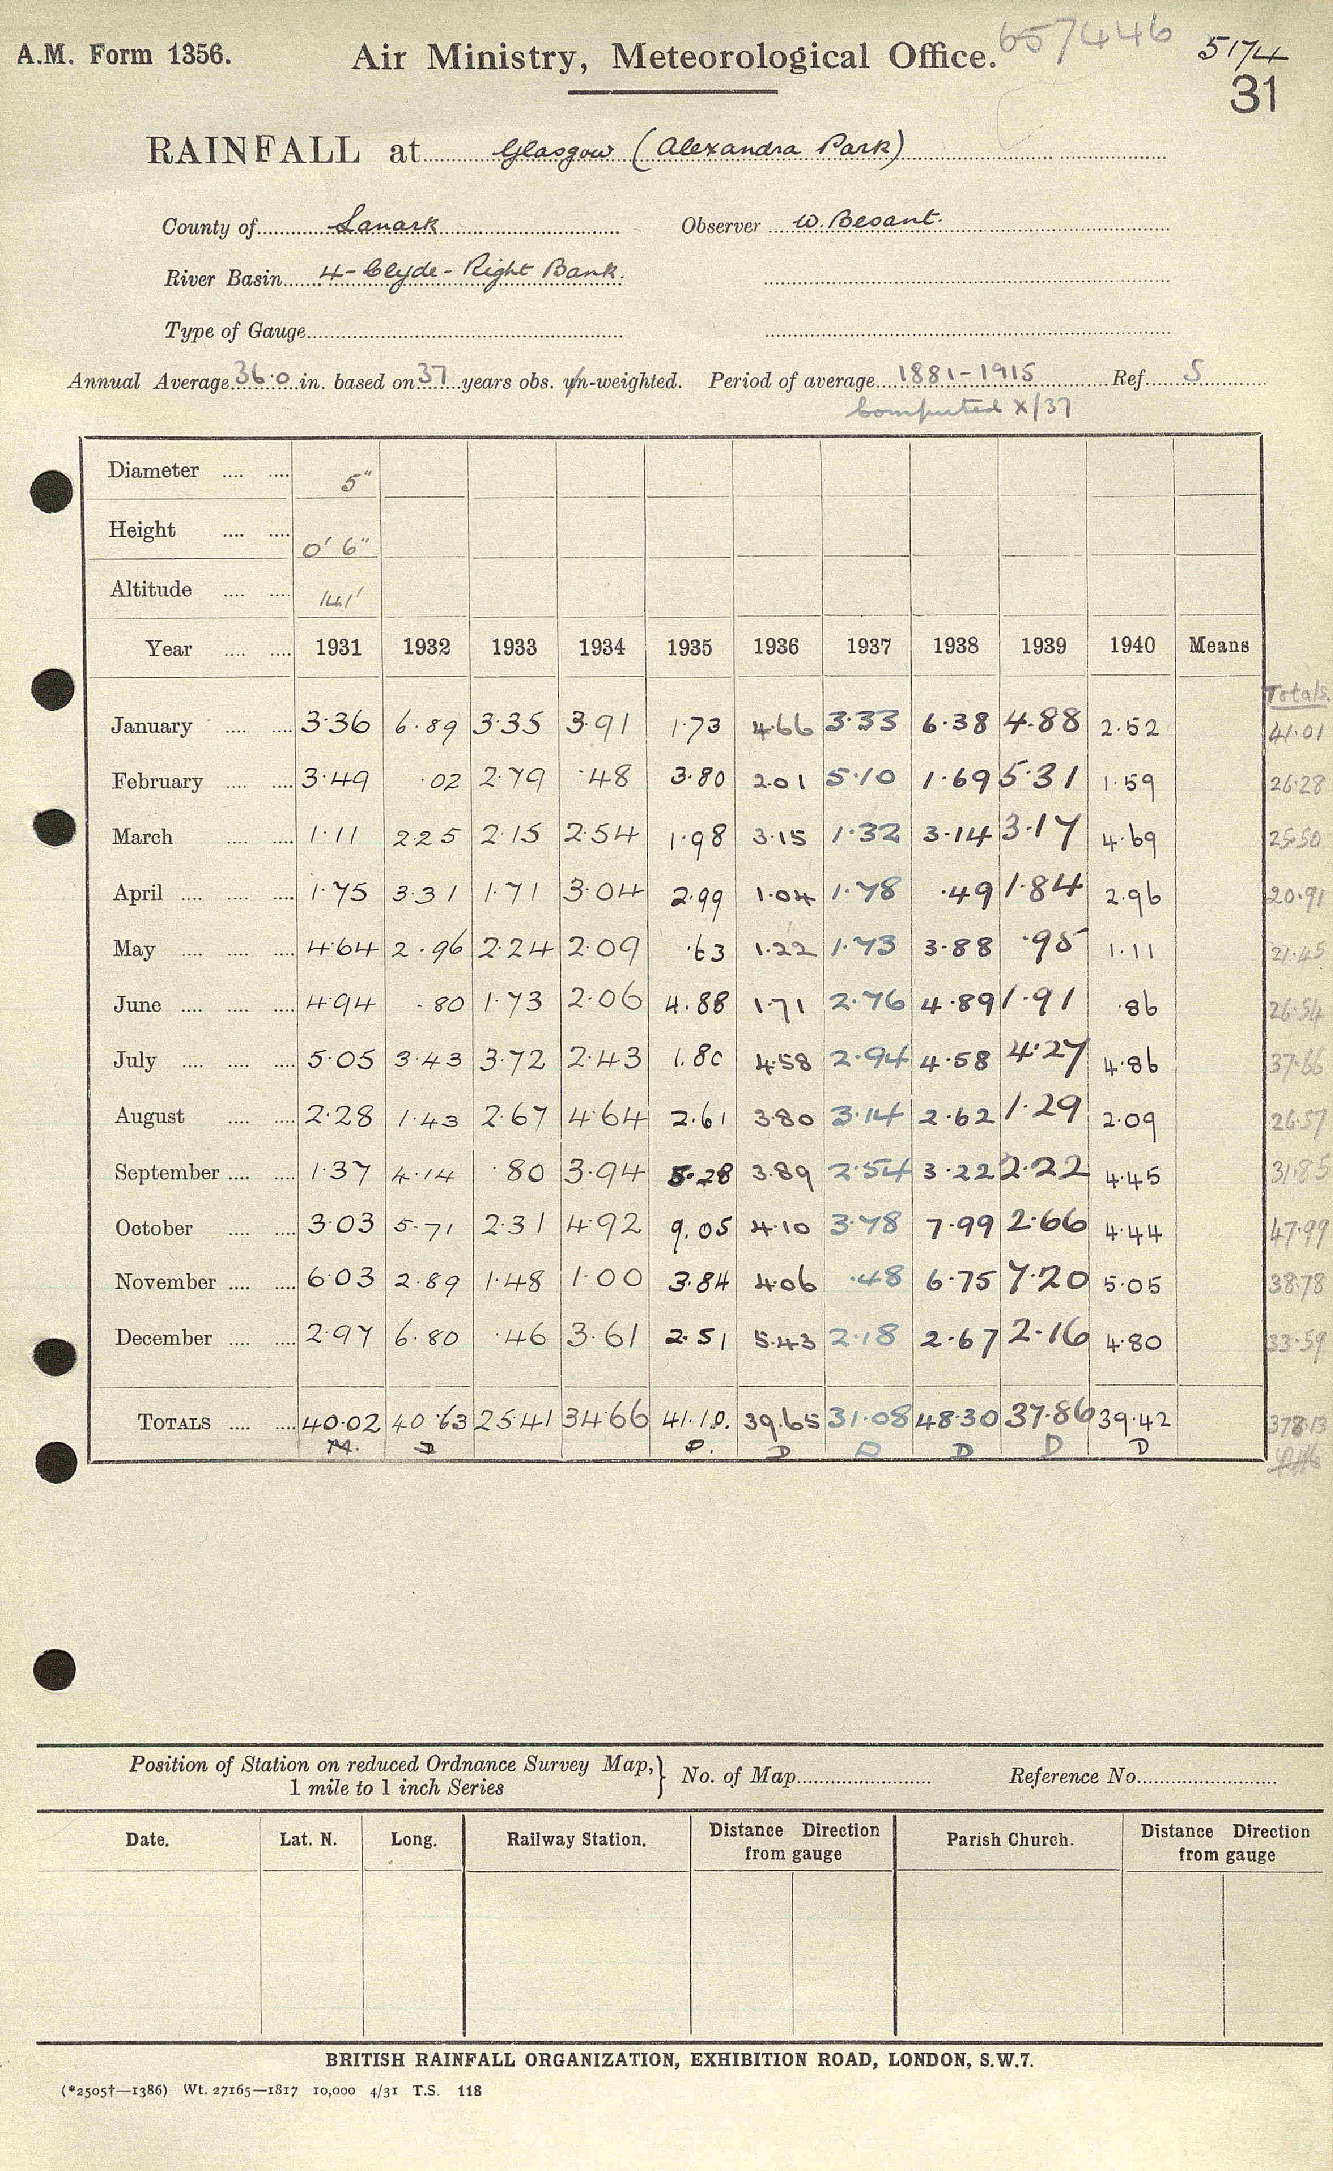 A.M. Form 1356.
Air Ministry, Meteorological Office.
657446
5174
31
RAINFALL at Glasgow (Alexandra Park)
County of Lanark
Observer W. Besant.
River Basin 4 - Clyde - Right Bank.
Type of Gauge
Annual Average 36.0 in. based on 37 years obs. un-weighted. Period of average 1881-1915 Ref. 5
Computed X/37
Diameter 5"
Height 0' 6"
Altitude 141'
Year 1931 1932 1933 1934 1935 1936 1937 1938 1939 1940 Means
Totals
January 3.36 6.89 3.35 3.91 1.73 4.66 3.33 6.38 4.88 2.52 41.01
February 3.49 .02 2.79 .48 3.80 2.01 5.10 1.69 5.31 1.59 26.28
March 1.11 2.25 2.15 2.54 1.98 3.15 1.32 3.14 3.17 4.69 25.50
April 1.75 3.31 1.71 3.04 2.99 1.04 1.78 .49 1.84 2.96 20.91
May 4.64 2.96 2.24 2.09 .63 1.22 1.73 3.88 .95 1.11 21.45
June 4.94 .80 1.73 2.06 4.88 1.71 2.76 4.89 1.91 .86 26.54
July 5.05 3.43 3.72 2.43 1.80 4.58 2.94 4.58 4.27 4.86 37.66
August 2.28 1.43 2.67 4.64 2.61 3.80 3.14 2.62 1.29 2.09 26.57
September 1.37 4.14 .80 3.94 5.28 3.89 2.54 3.22 2.22 4.45 31.85
October 3.03 5.71 2.31 4.92 9.05 4.10 3.78 7.99 2.66 4.44 47.99
November 6.03 2.89 1.48 1.00 3.84 4.06 .48 6.75 7.20 5.05 38.78
December 2.97 6.80 .46 3.61 2.51 5.43 2.18 2.67 2.16 4.80 33.59
TOTALS 40.02 40.63 25.41 34.66 41.10. 39.65 31.08 48.30 37.86 39.42 378.13
M. D D. D D D D D
Position of Station on reduced Ordnance Survey Map,} No. of Map Reference No.
1 mile to 1 inch Series
Date. Lat. N. Long. Railway Station. Distance Direction Parish Church. Distance Direction
from gauge from gauge
BRITISH RAINFALL ORGANIZATION, EXHIBITION ROAD, LONDON, S.W.7.
(*2505†—1386) Wt. 27165—1817 10,000 4/31 T.S. 118